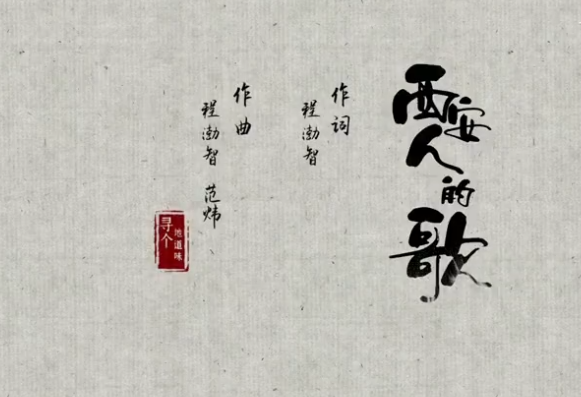 西安人的歌
作词
程渤智
作曲
程渤智 范炜
寻个
地道味